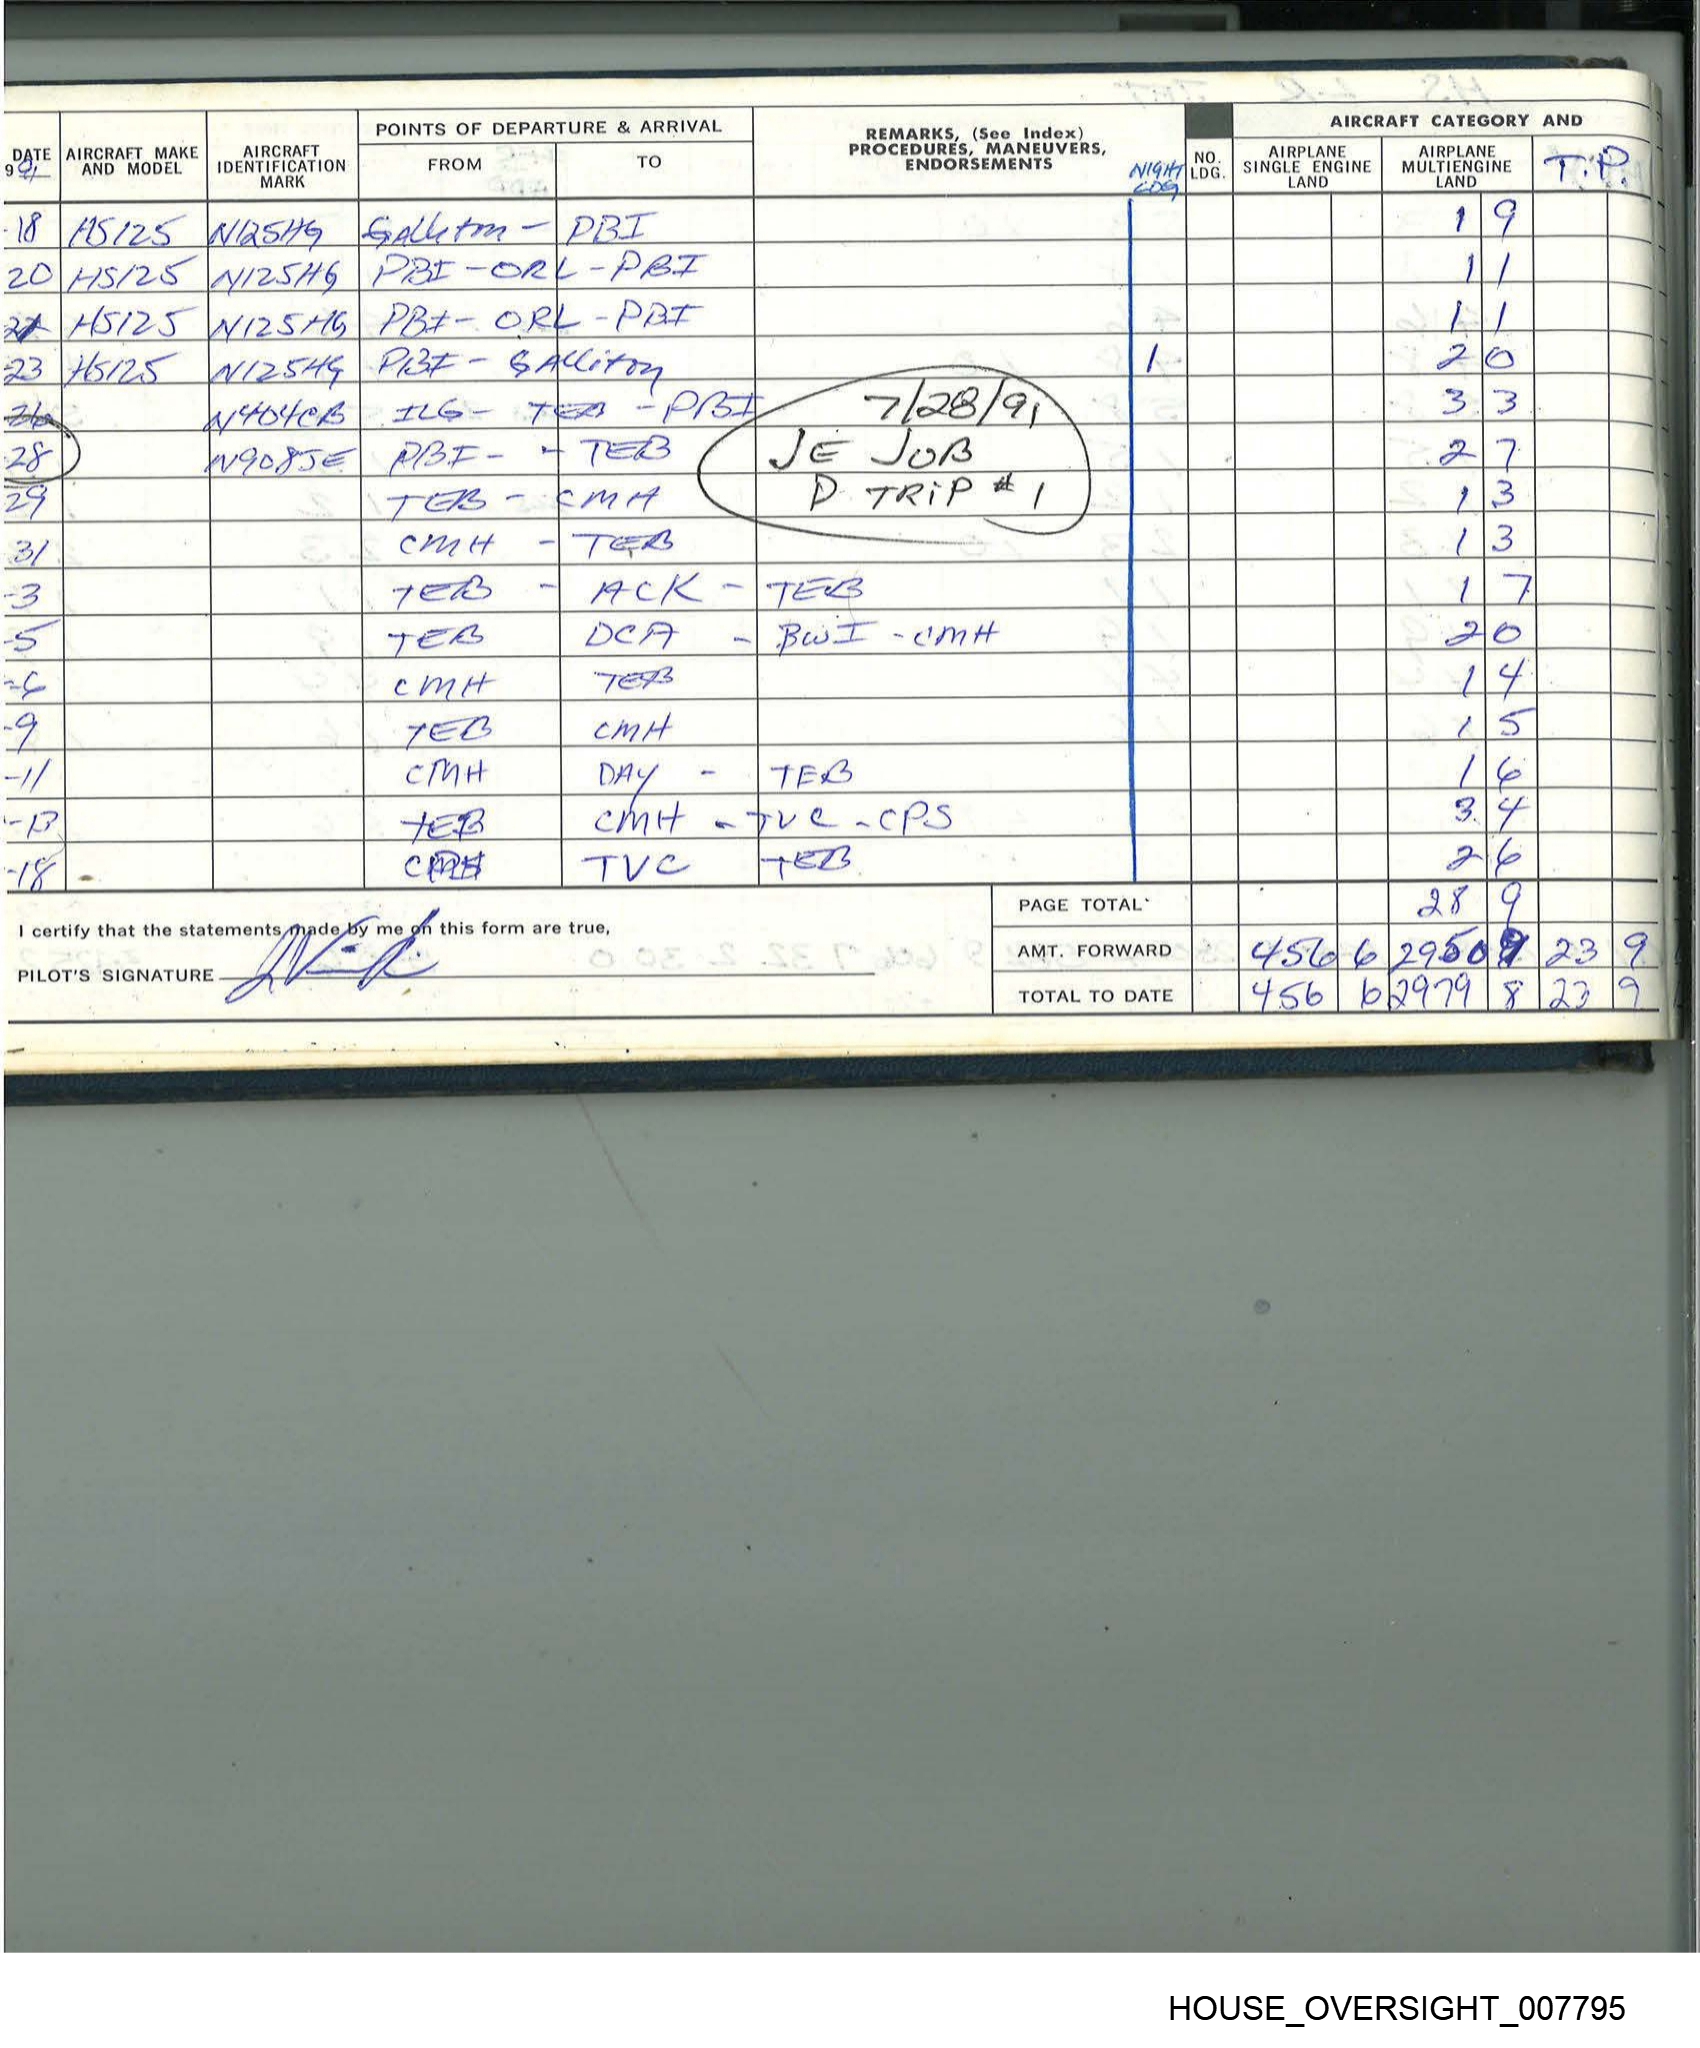 AIRCRAFT CATEGORY AND
POINTS OF DEPARTURE & ARRIVAL
DATE AIRCRAFT MAKE AND MODEL AIRCRAFT IDENTIFICATION MARK FROM TO REMARKS, (See Index) PROCEDURES, MANEUVERS, ENDORSEMENTS NIGHT LDG NO. LDG. AIRPLANE SINGLE ENGINE LAND AIRPLANE MULTIENGINE LAND T.P.
991
-18 HS125 N125HG Galliton - PBI 1 9
20 HS125 N125HG PBI - ORL - PBI 1 1
21 HS125 N125HG PBI - ORL - PBI 1 1
23 HS125 N125HG PBI - Galliton 1 2 0
26 N404CB ILG - TEB - PBI 7/28/91 3 3
28 N908JE PBI - - TEB JE JOB 2 7
29 TEB - CMH D TRIP #1 1 3
31 CMH - TEB 1 3
-3 TEB - ACK - TEB 1 7
-5 TEB DCA - BWI - CMH 2 0
-6 CMH TEB 1 4
-9 TEB CMH 1 5
-11 CMH DAY - TEB 1 6
-13 TEB CMH - TVC - CPS 3 4
-18 TVC TEB 2 6
PAGE TOTAL 28 9
I certify that the statements made by me on this form are true,
AMT. FORWARD 456 6 2950 9 23 9
PILOT'S SIGNATURE
TOTAL TO DATE 456 6 2979 8 23 9
HOUSE_OVERSIGHT_007795